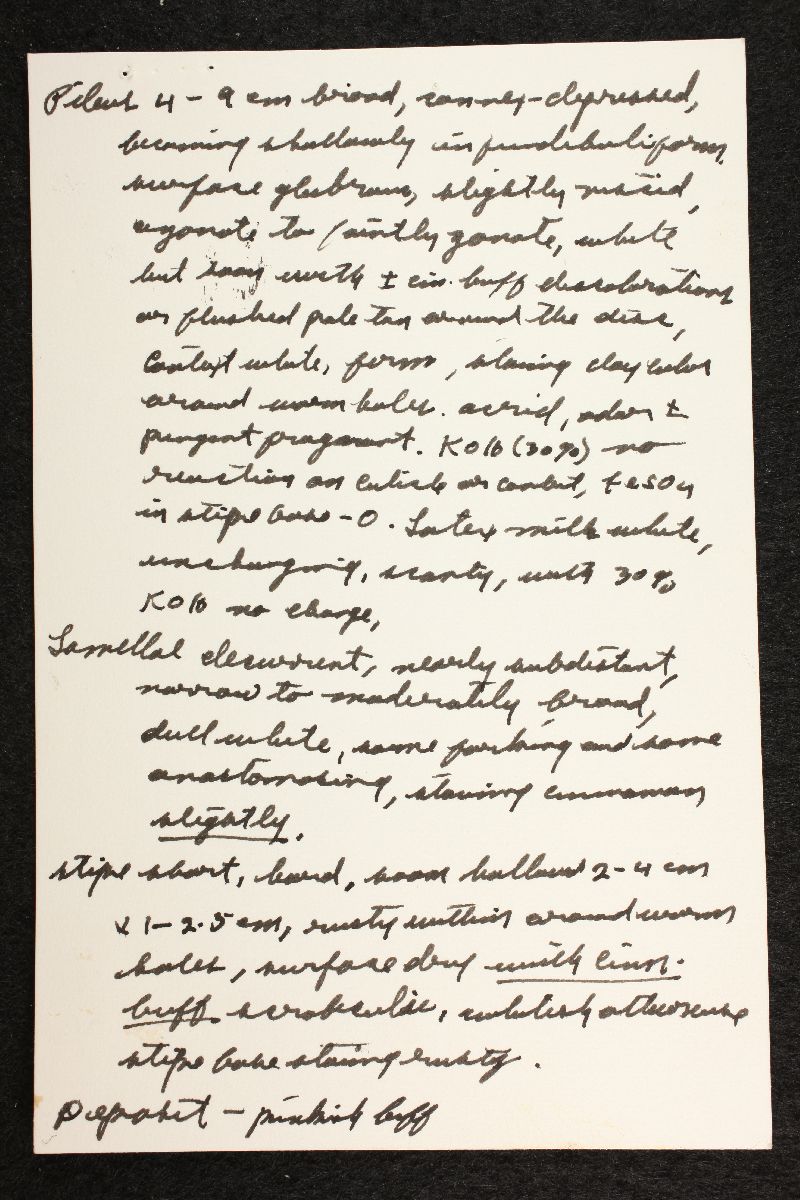 Pileus 4 – 9 cm broad, convex-depressed,
becoming shallowly infundibuliform,
surface glabrous, slightly viscid,
azonate to faintly zonate, white
but soon with ± cin. buff discolorations
or flushed pale tan around the disc,
Context white, firm, staining clay color
around worm holes. acrid, odor ±
pungent fragrant. KOH (30%) no
reaction on cuticle or context, FeSO4
in stipe base – O. Latex milk white,
unchanging, scanty, with 30%
KOH no change,
Lamellae decurrent, nearly subdistant,
narrow to moderately broad,
dull white, some forking and some
anastomosing, staining cinnamon
slightly.
stipe short, hard, soon hollow 2-4 cm
x 1–2.5 cm, rusty within around worm
holes, surface dry with cinn.
buff scrobiculie, whitish otherwise
stipe base staining rusty.
Deposit – pinkish buff